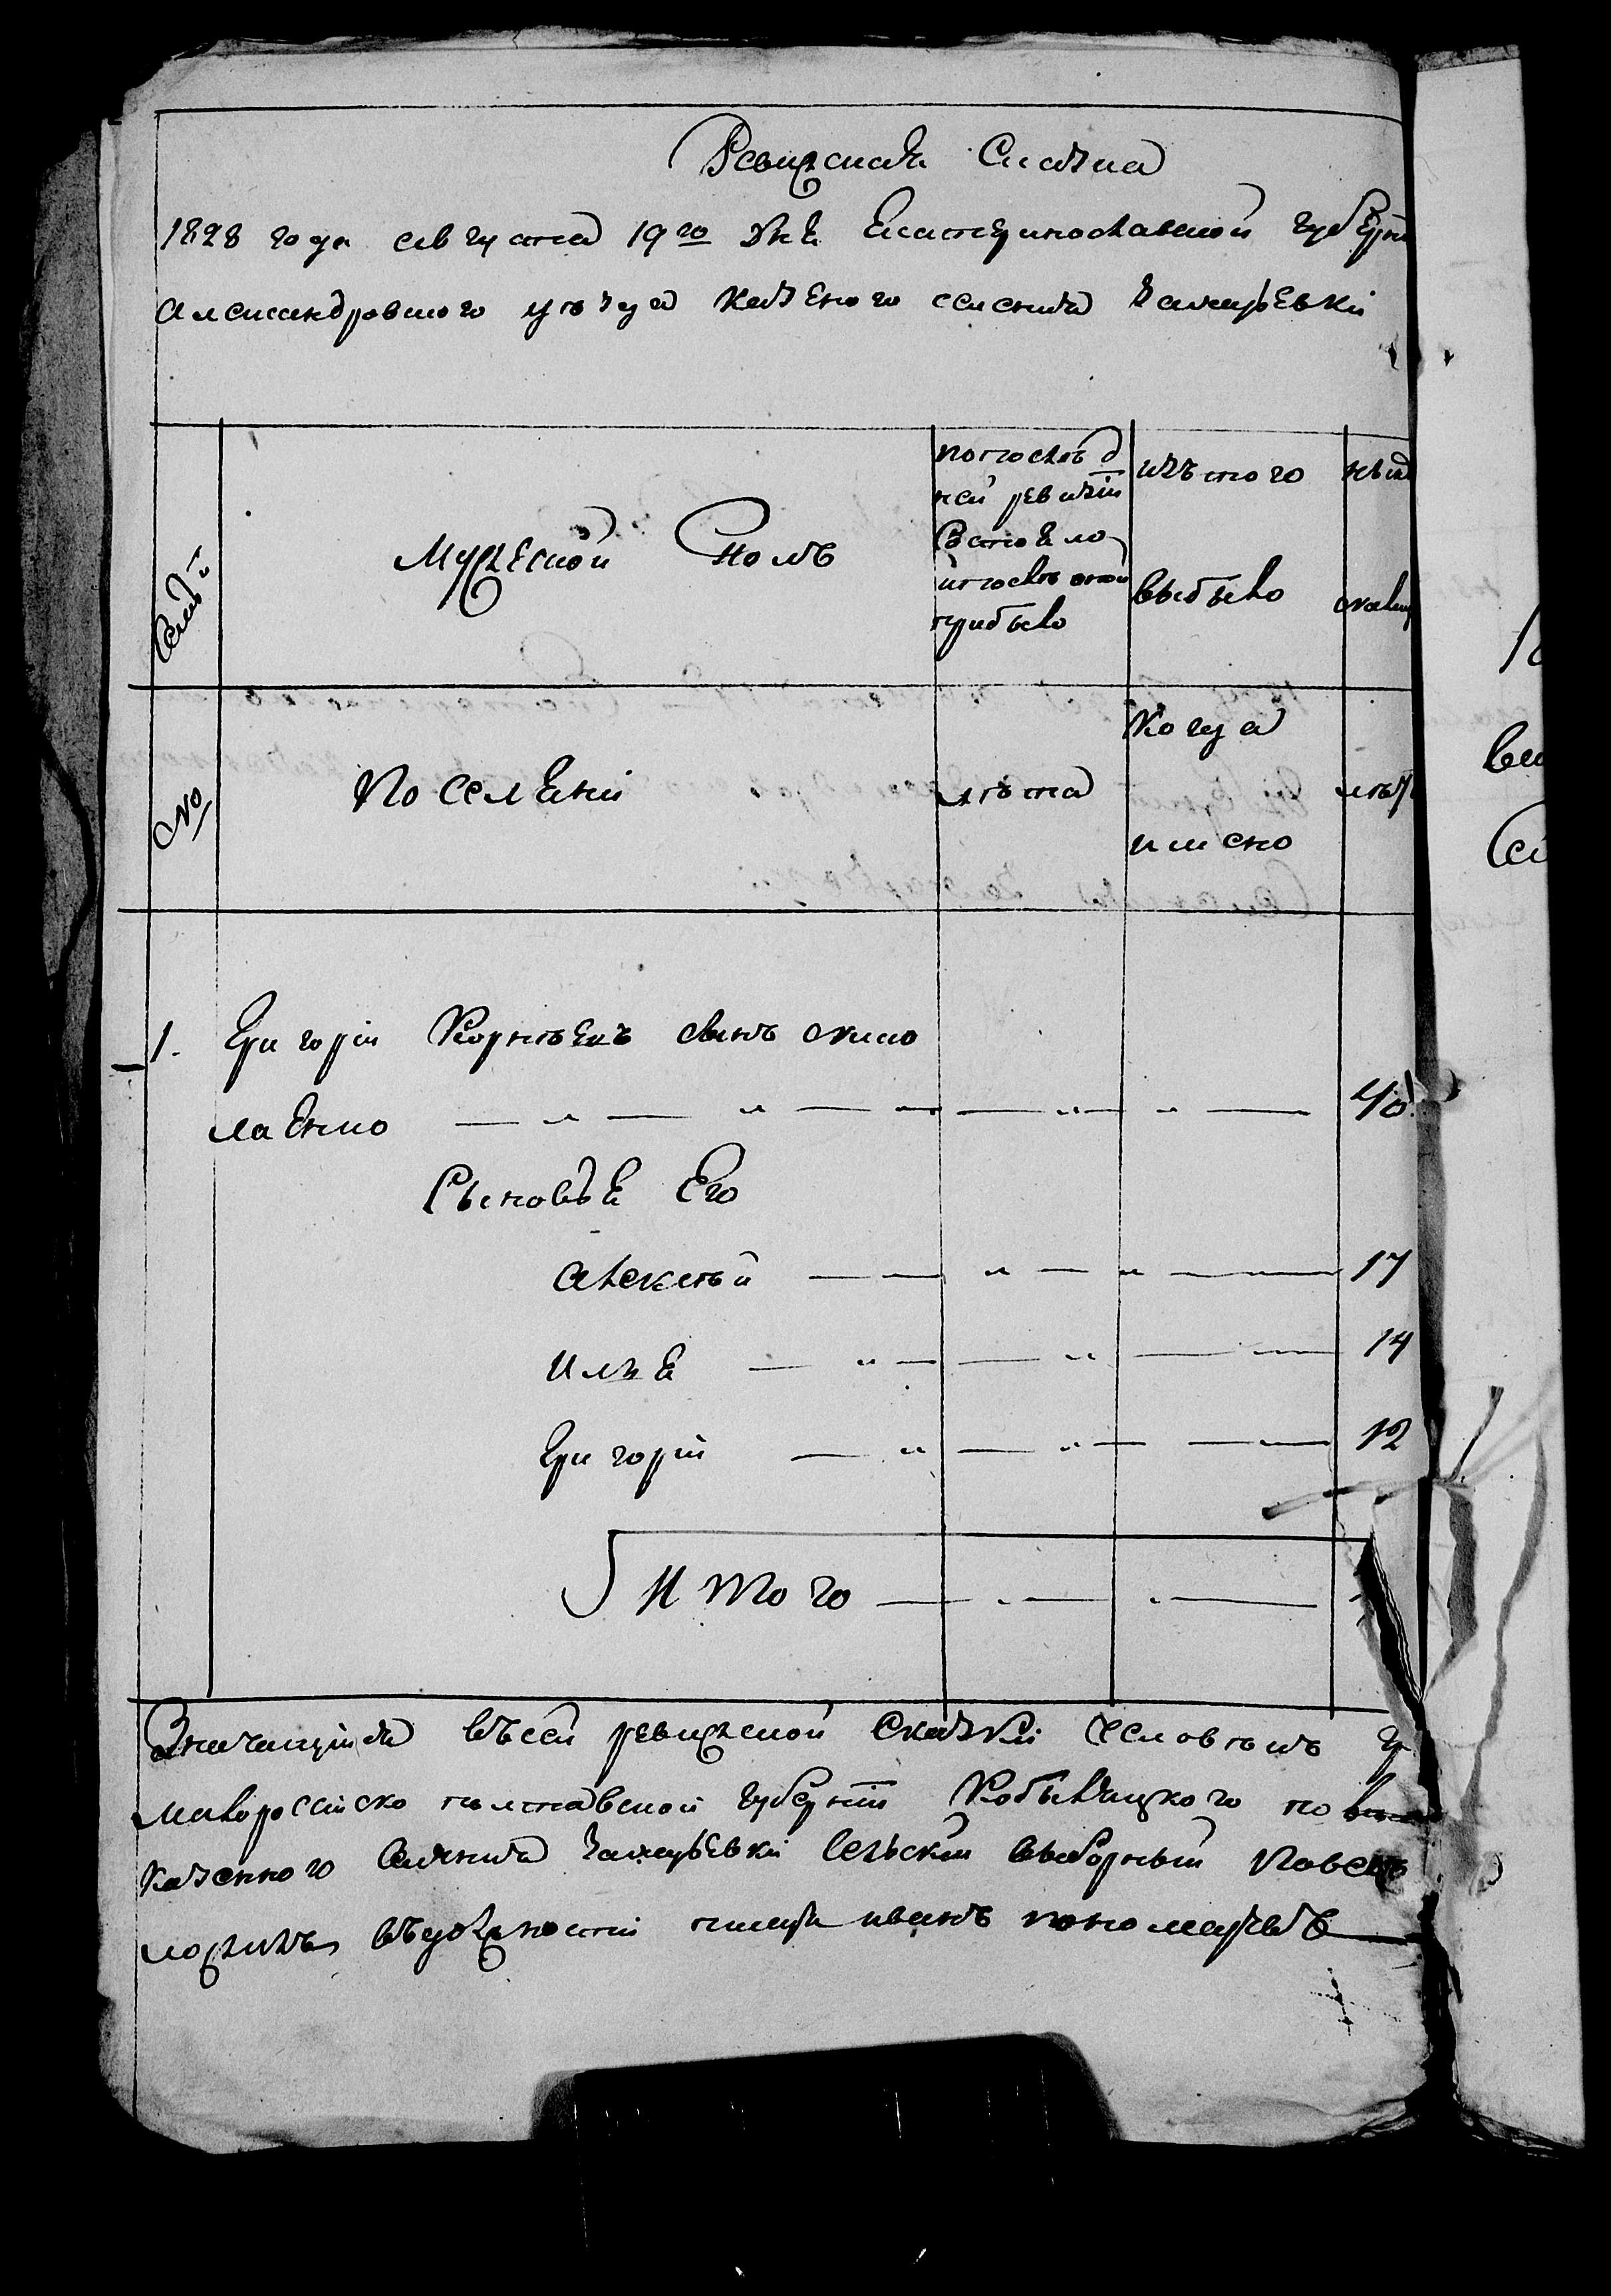 Ревизская Сказка
1828 года августа 19го дня Екатеринославской губерни
Александровского уезда казеного селения
Семьи
Мужеской Полъ
по последней ревизiи состояло и после оной прибыло
изъ того выбыло
ныне
№
Поселенiй
лѣта
Когда именно
лѣт
1. Григорiй Корнѣевъ сынъ Нико
лаенко 40
Сыновья Его
Алексѣй 17
Илья 14
Григорiй 12
Итого
Значащiйся въ сей ревижской Сказки Человѣкъ
Малороссiско полтавской губернiи Кобыляцкого пов
казенного Селения Сельскiй выборный Павелъ
въ должности писаря иванъ пономаревъ